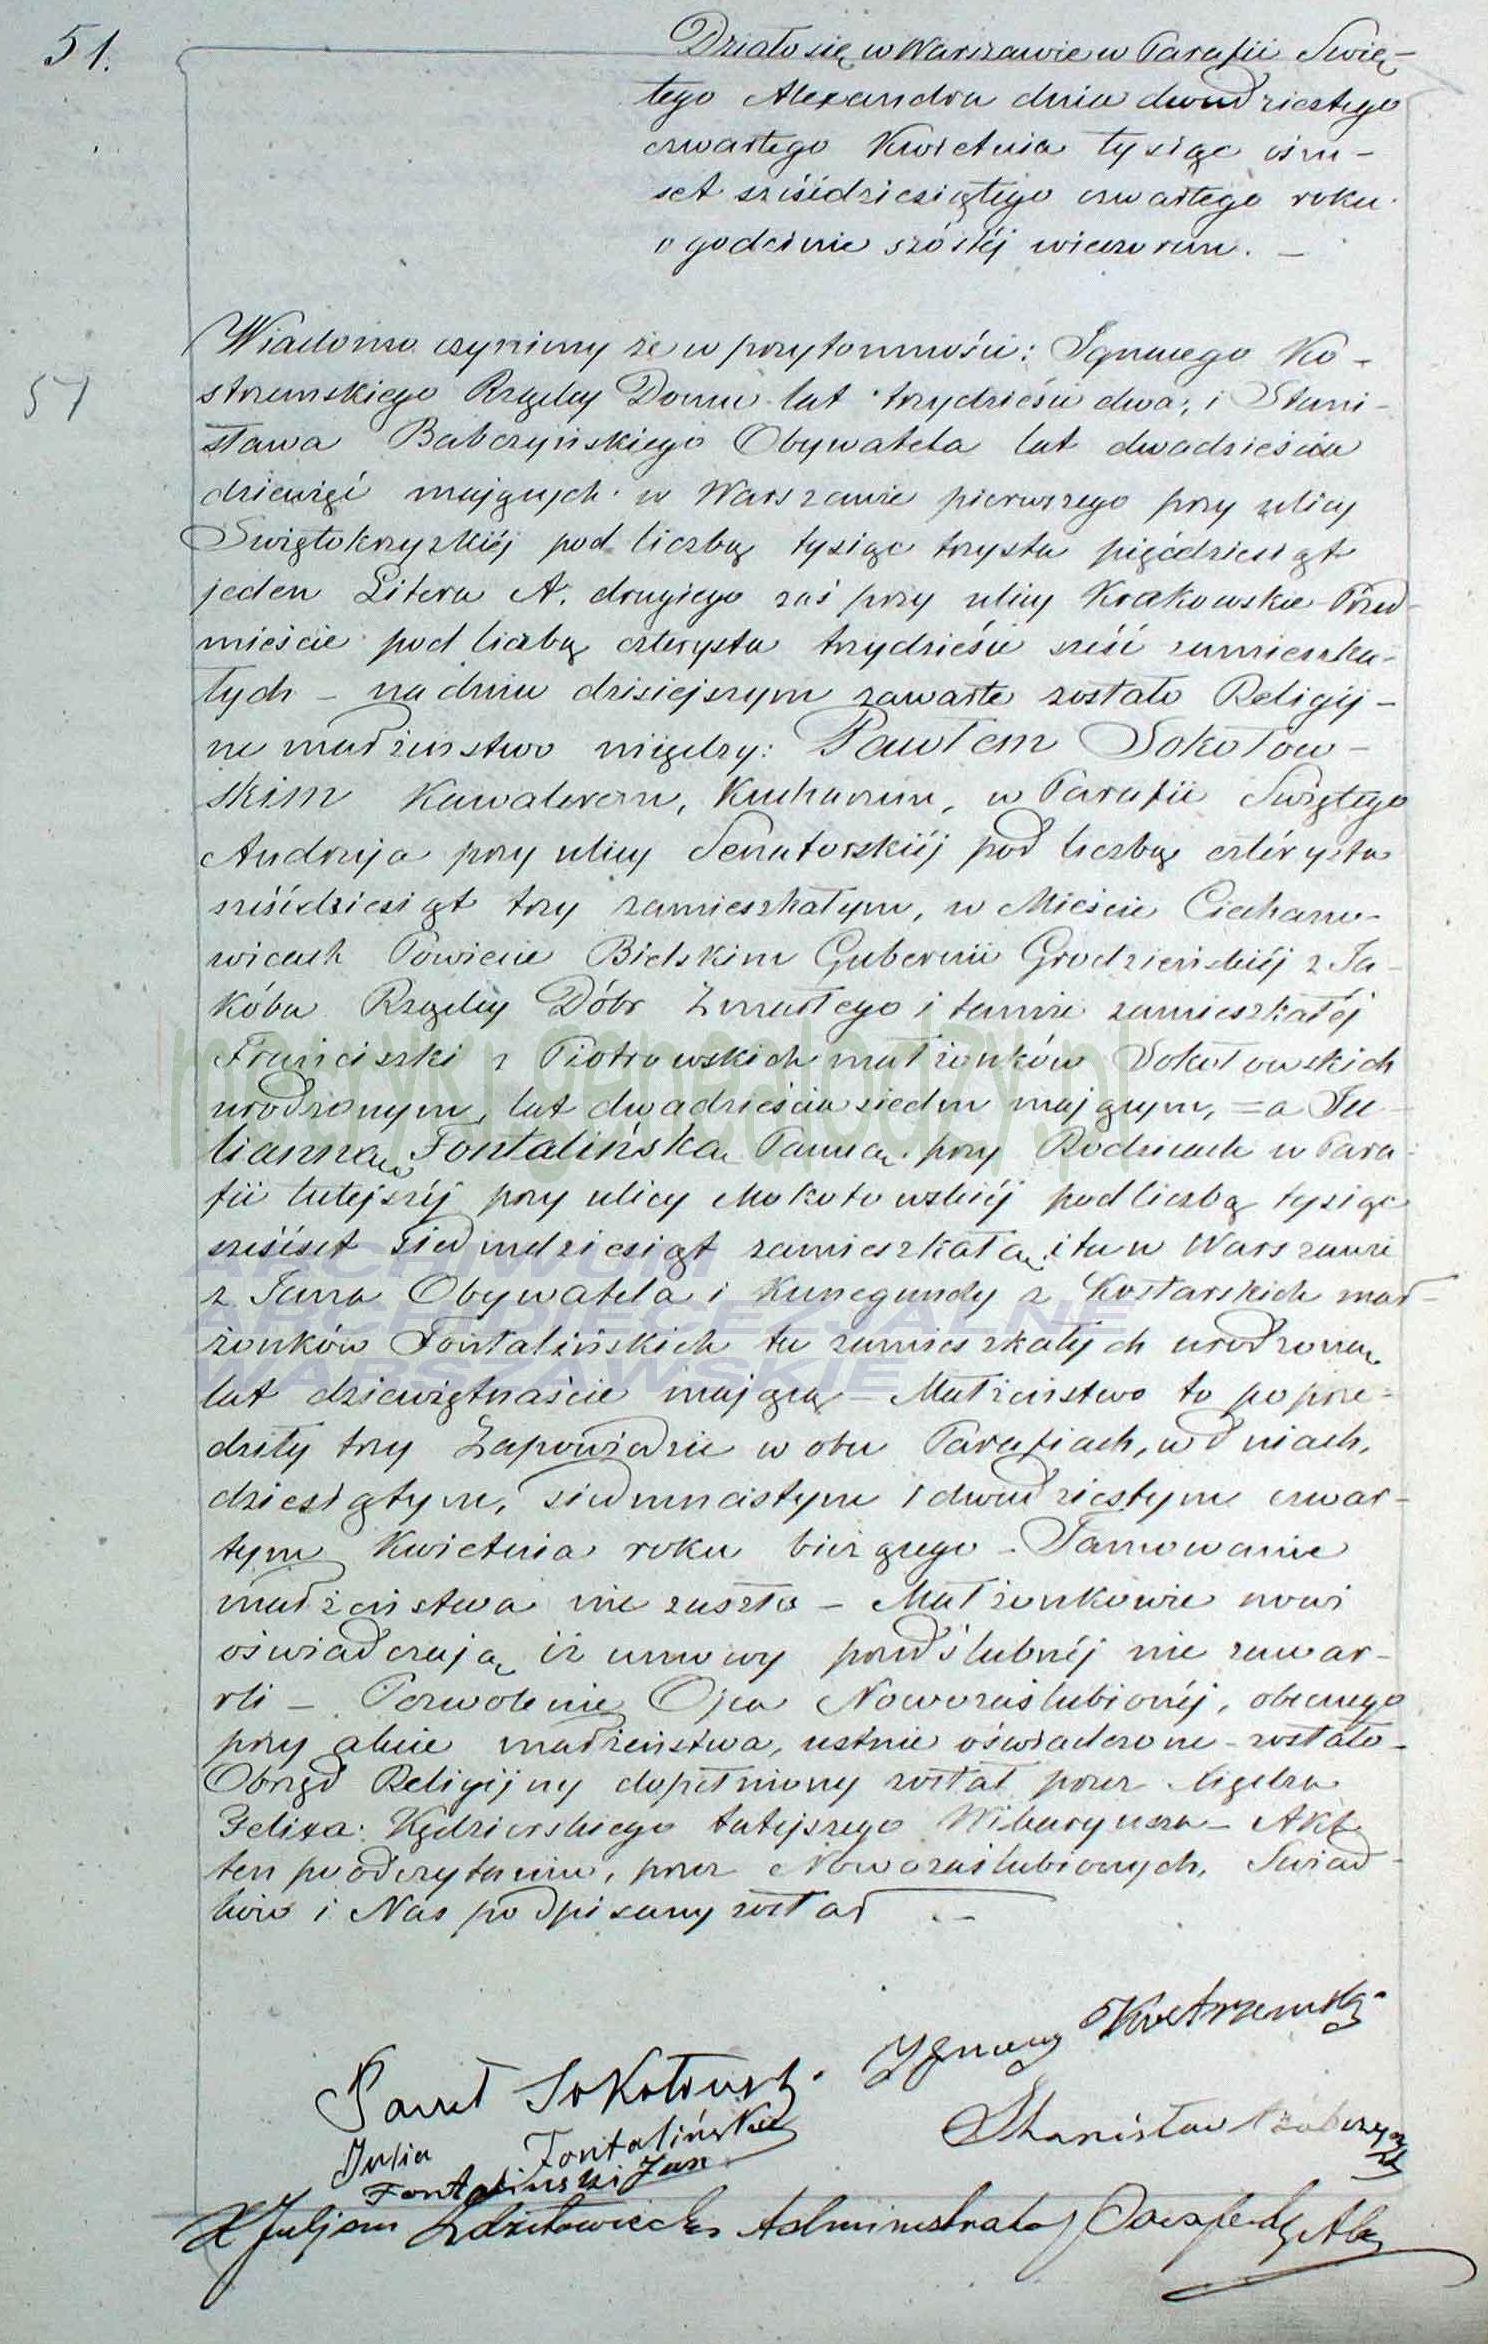 51.
Działo się w Warszawie w Parafii Świę-
tego Alexandra dnia dwudziestego
czwartego Kwietnia tysiąc ośm-
set sześćdziesiątego czwartego roku
o godzinie szóstéj wieczorem. –
Wiadomo czynimy że w przytomności: Ignacego Ko-
strzemskiego Rządcy Domu lat trzydzieści dwa, i Stani-
sława Babczyńskiego Obywatela lat dwadzieścia
dziewięć mających w Warszawie pierwszego przy ulicy
Świętokrzyzkiéj pod liczbą tysiąc trzysta pięćdziesiąt
jeden Litera A. drugiego zaś przy ulicy Krakowskie-Przed-
mieście pod liczbą czterysta trzydzieści sześć zamieszka-
łych – na dniu dzisiejszym zawarte zostało Religij-
51
ne małżeństwo między: Pawłem Sokołow-
skim Kawalerem, Kucharzem, w Parafii Świętego
Andrzeja przy ulicy Senatorskiéj pod liczbą cztérysta
sześćdziesiąt trzy zamieszkałym, w Mieście Ciechano-
wicach Powiecie Bielskim Gubernii Grodzieńskiéj z Ja-
kóba Rządcy Dóbr Zmarłego i tamże zamieszkałéj
Franciszki z Piotrowskich małżonków Sokołowskich
urodzonym, lat dwadzieścia siedm mającym, = a Ju-
lianną Fontalińską Panną przy Rodzicach w Para-
fii tutejszéj przy ulicy Mokotowskiéj pod liczbą tysiąc
sześćset siedmdziesiąt zamieszkałą, i tu w Warszawie
z Jana Obywatela i Kunegundy z Kostarskich mał-
żonków Fontalińskich tu zamieszkałych urodzoną
lat dziewiętnaście mającą – Małżeństwo to poprze-
dziły trzy Zapowiedzie w obu Parafiach, w dniach,
dziesiątym, siedmnastym i dwudziestym czwar-
tym Kwietnia roku bieżącego – Tamowanie
małżeństwa nie zaszło – Małżonkowie nowi
oświadczają iż umowy przedślubnéj nie zawar-
rli – Pozwolenie Ojca Nowozaślubionéj, obecnego
przy akcie małżeństwa, ustnie oświadczone zostało –
Obrzęd Religijny dopełniony został przez Xiędza
Felixa Kędzierskiego tutejszego Wikaryusza – Akt
ten po odczytaniu, przez Nowozaślubionych, Świad-
ków i Nas podpisany został –
Ignacy Kostrzemski
Paweł Sokołowski
Stanisław Babczyński
Julia Fontalińska
Fontaliński Jan
X Juljan Zdzitowiecki Administrator Parafii Ś. Alex
metryki.genealodzy.pl
ARCHIWUM
ARCHIDIECEZJALNE
WARSZAWSKIE